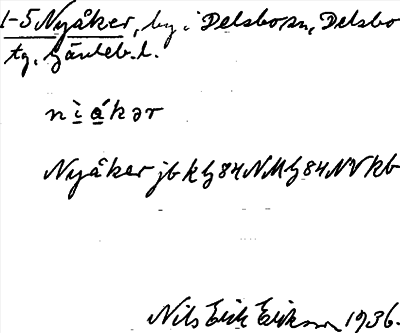 1-5 Nyåker, by i Delsbo sn, Delsbo
tg, Gävleb. l.
Nyåker jb k G 84 NM G 84 NV kb
Nils Erik Erikson 1936.